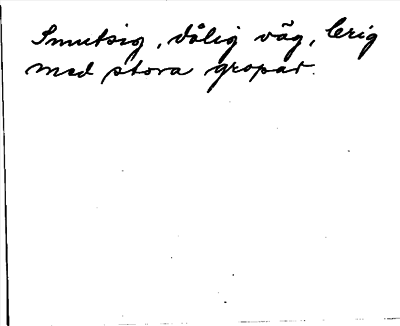 Smutsig, dålig väg, lerig
med stora gropar.